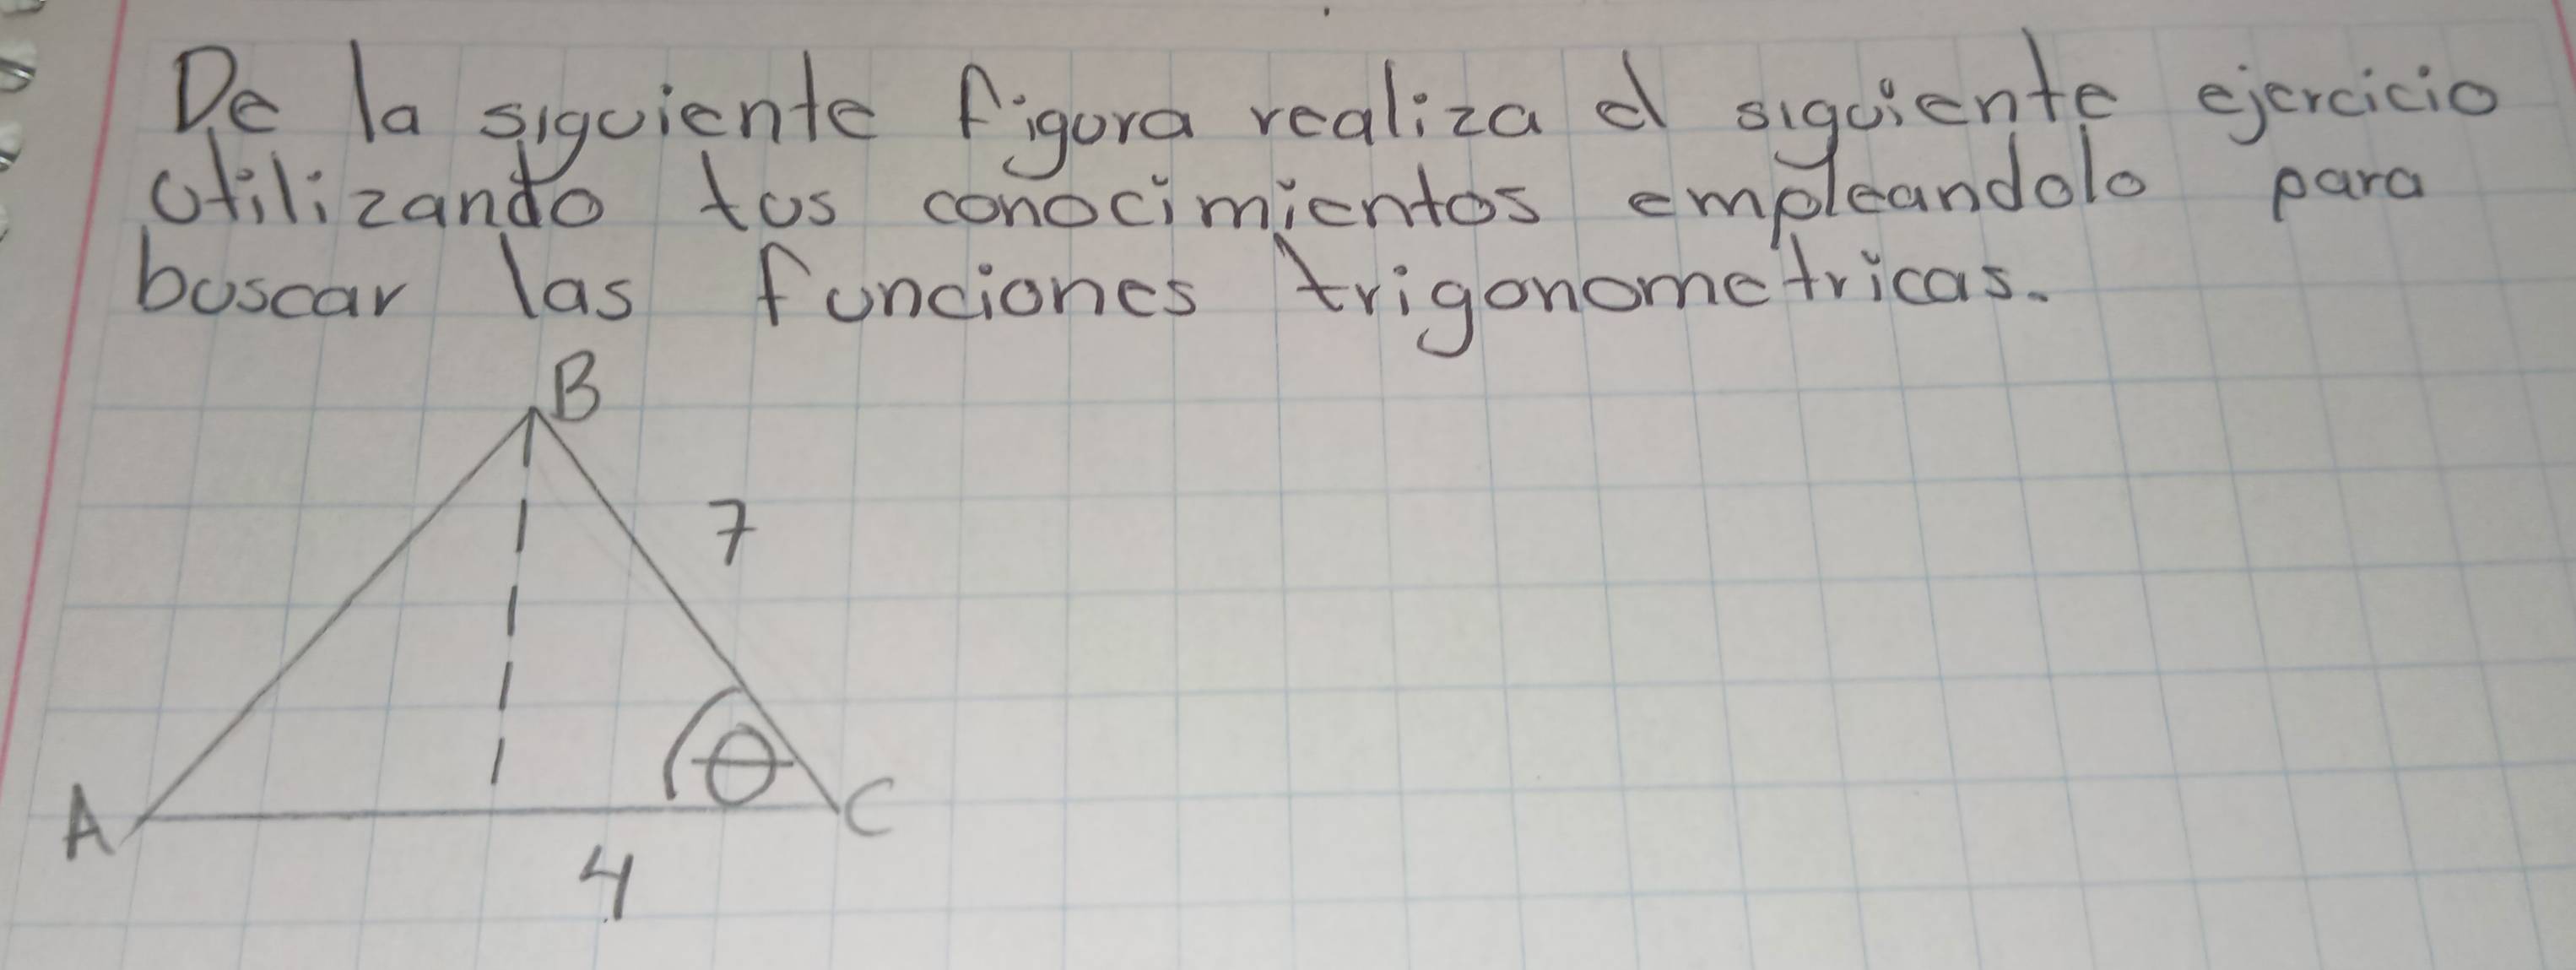 De la siguiente figura realiza el siguiente ejercicio
utilizando tus conocimientos empleandolo para
buscar las funciones trigonometricas.
B
7
θ
A
C
4